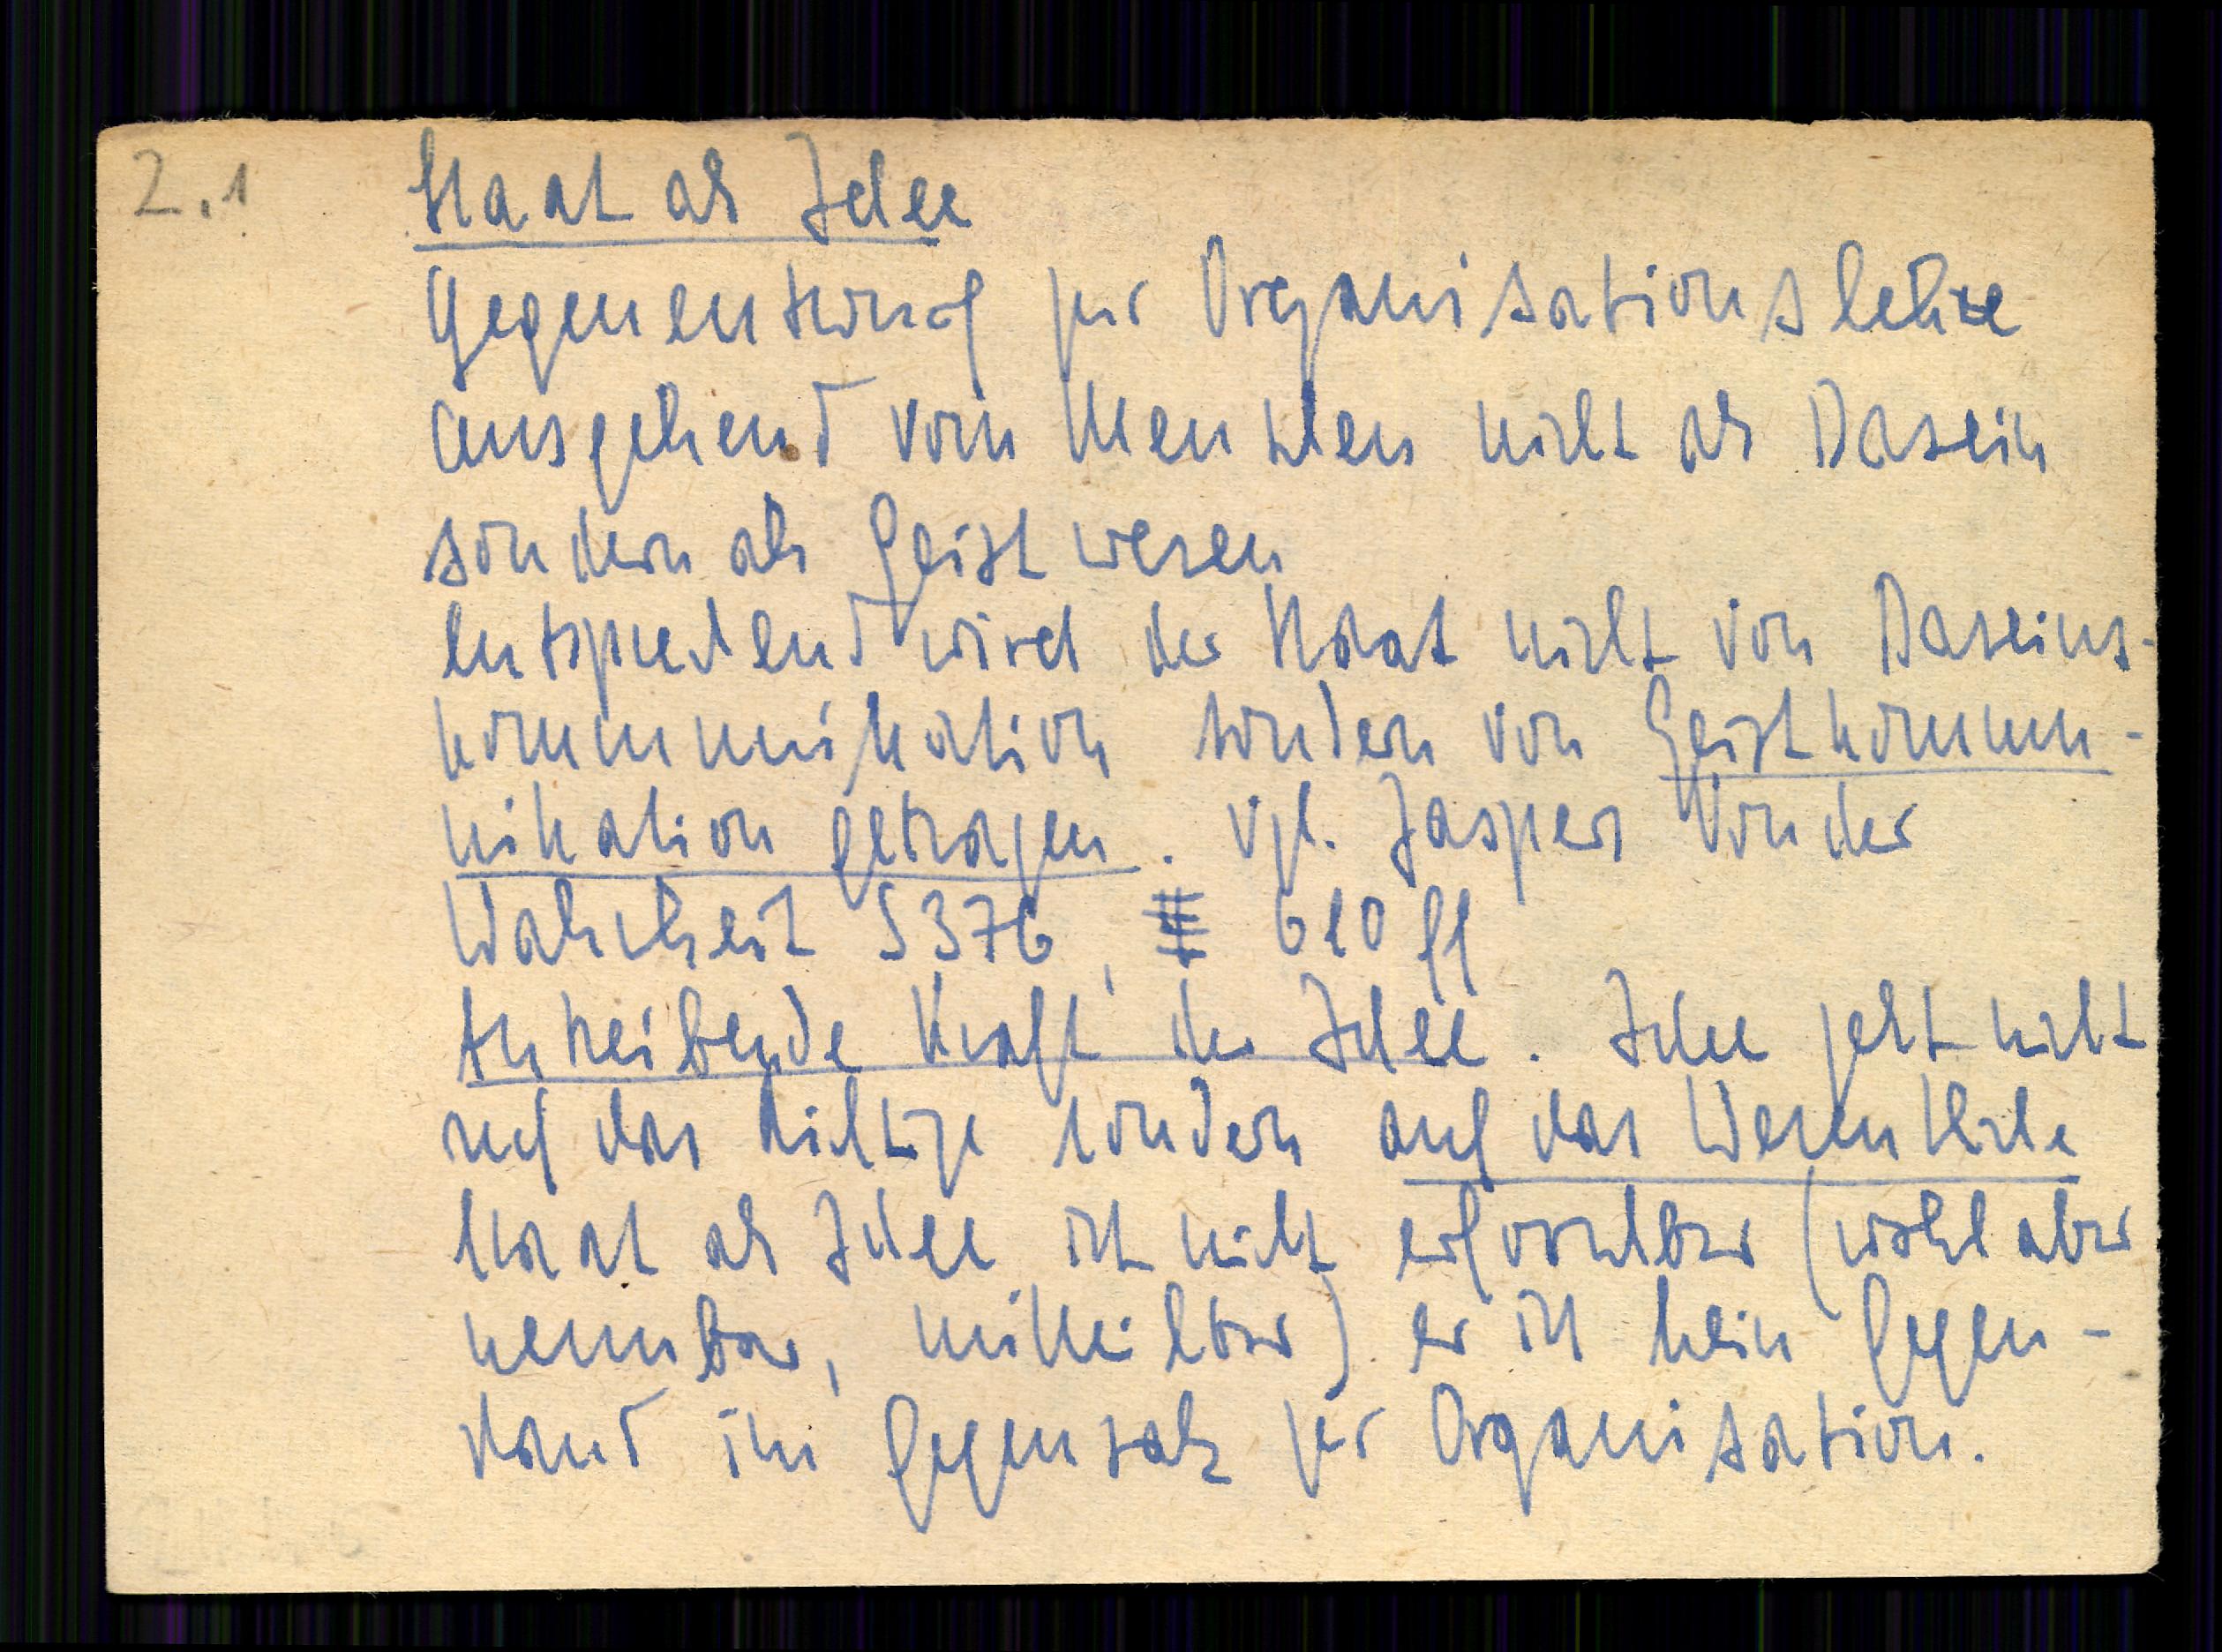 2.1 Staat als Idee
Gegenentwurf zur Organisationslehre
ausgehend vom Menschen nicht als Dasein
sondern als Geistwesen
entsprechend wird der Staat nicht von Daseins-
kommunikation sondern von Geistkommu-
nikation getragen. Vgl. Jaspers Von der
Wahrheit S 376, 610 ff
Antreibende Kraft der Idee. Idee geht nicht
auf das Richtige sondern auf das Wesentliche
Staat als Idee ist nicht erforschbar (wohl aber
nennbar, mitteilbar) er ist kein Gegen-
stand im Gegensatz zur Organisation.